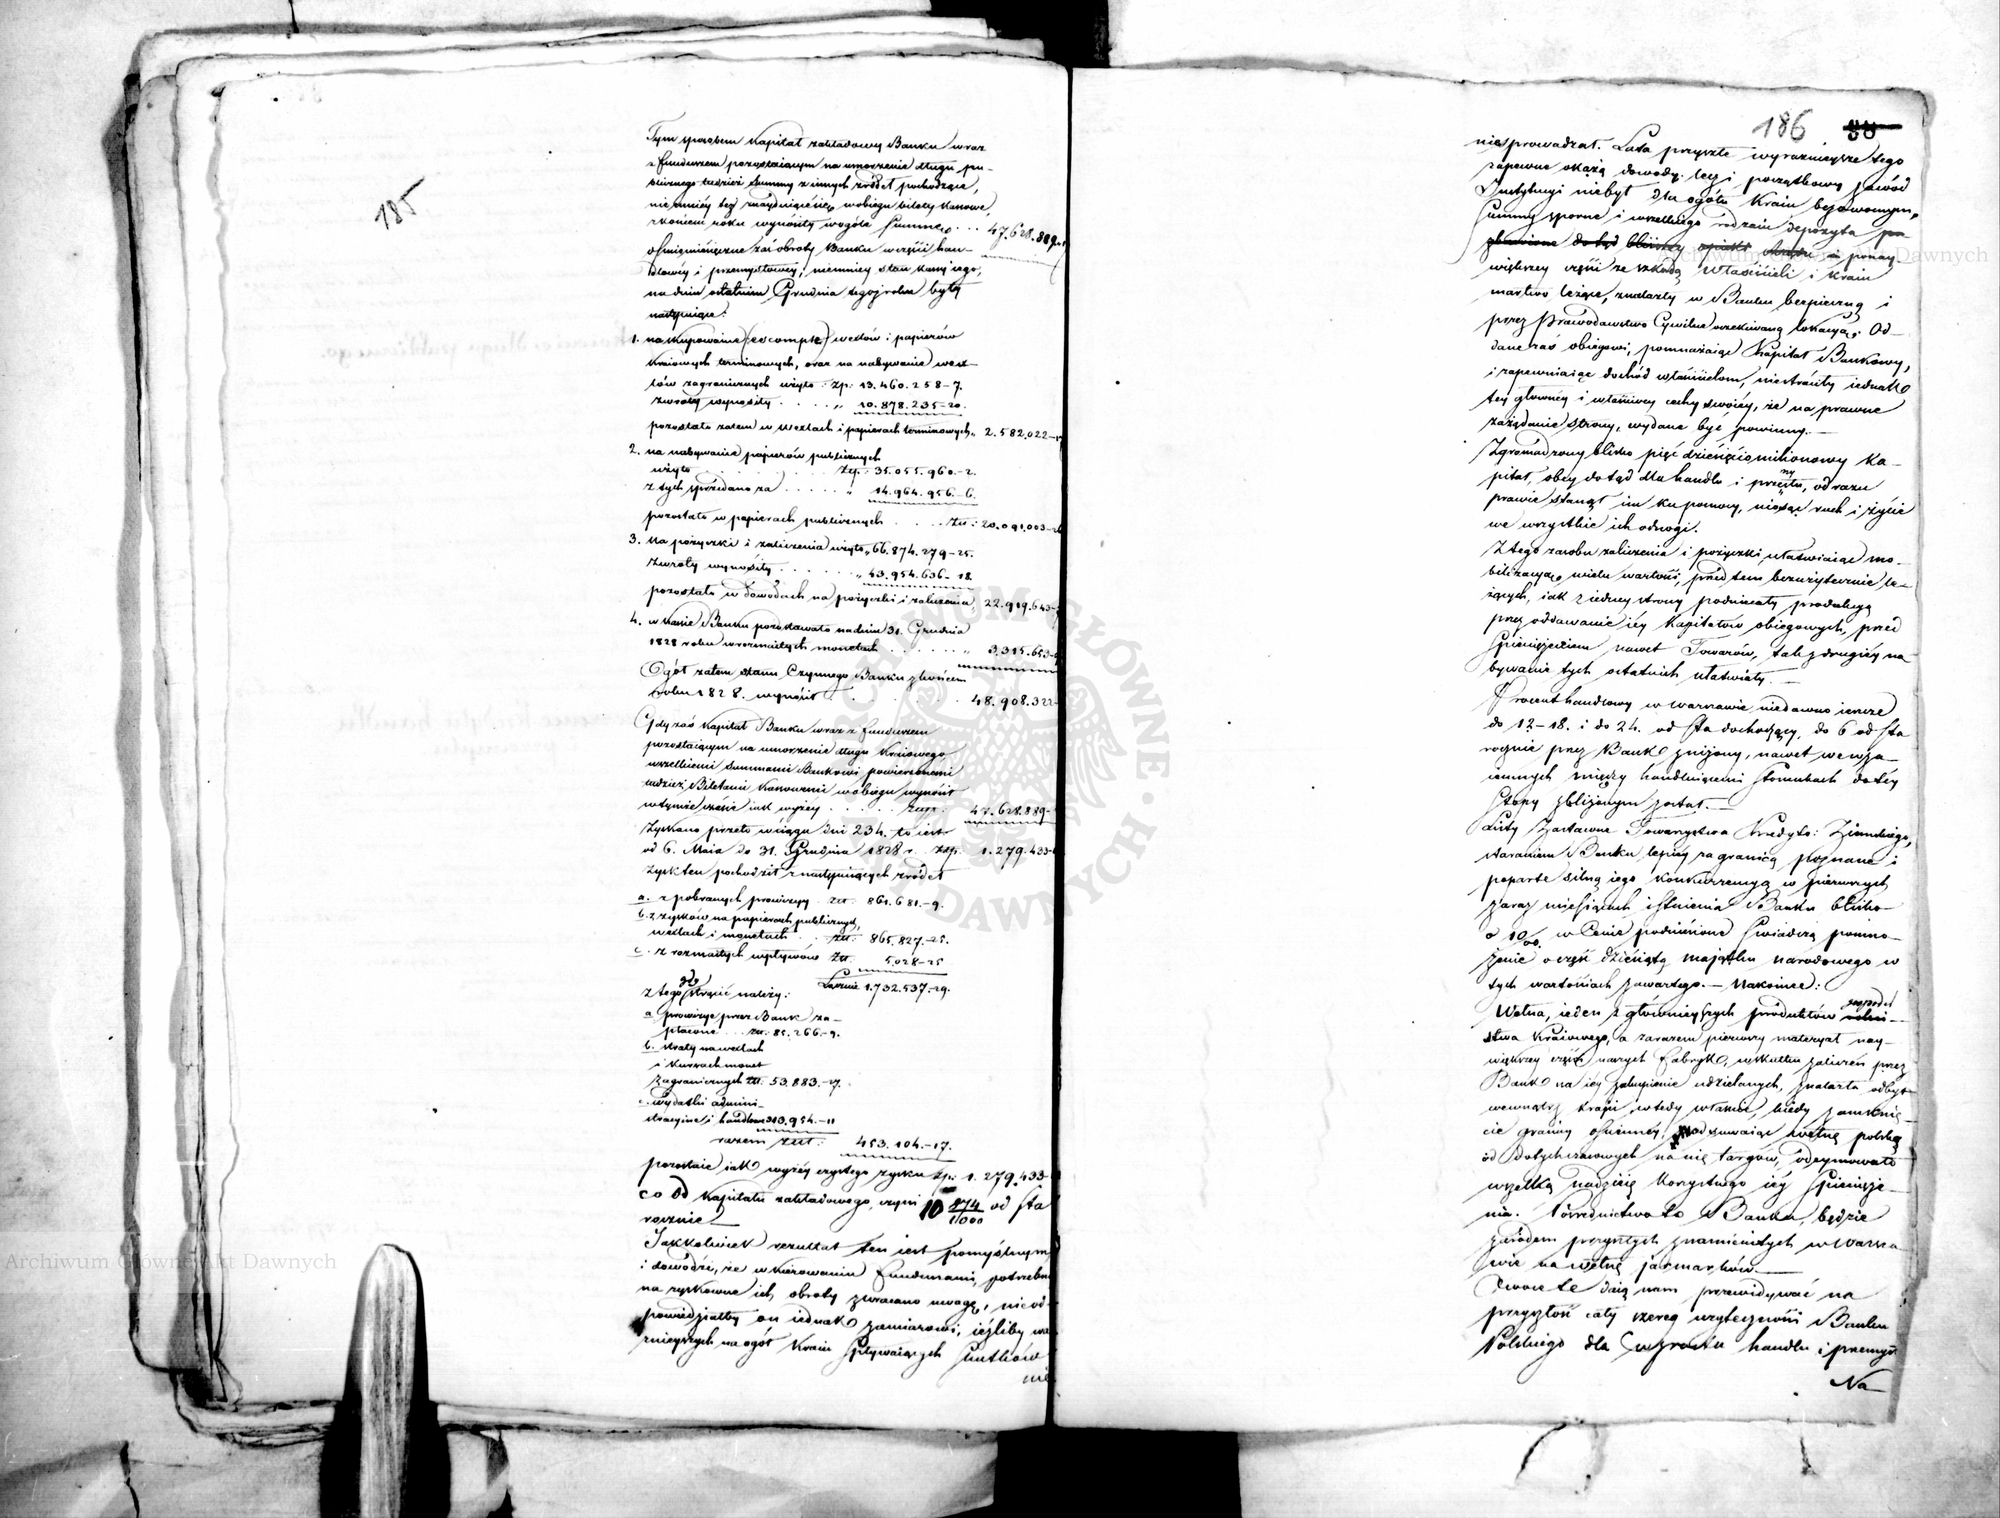 185
Tym sposobem Kapitał zakładowy Banku wraz
z funduszem pozostaiącym na umorzenie długu pu-
blicznego tudzież Summy z innych źródeł pochodzące,
niemniéy też znayduiącemi się w obiegu bilety kassowe,
z końcem roku wynosiły wogóle Summę . . . 47.628.889.
ośmiomiesięczne zaś obroty Banku w części han-
dlowéy i przemysłowéy, niemniéy stan kassy iego,
na dniu ostatnim Grudnia tegoż roku były
następuiące:
1. na skupowanie (escompte) wexlów i papierów
kraiowych terminowych, oraz na nabywanie wex-
lów zagranicznych użyto : zp: 13.460.258-7.
zwroty wynosiły . . . . „ 10.878.235-20.
pozostało zatem w wexlach i papierach terminowych „ 2.582.022-
2. na nabywanie papierów publicznych
użyto . . . . . . Złp: 35.055.960.-2.
z tych sprzedano za . . . . . „ 14.964.956.-6.
pozostało w papierach publicznych . . . . Zł: 20.091.003-26
3. Na pożyczki i zaliczenia użyto „ 66.874.279-25.
zwroty wynosiły . . . . . „ 43.954.636-18.
pozostało w dowodach na pożyczki i zaliczenia, 22.919.643-
4. w kassie Banku pozostawało na dniu 31. Grudnia
1828 roku w rozmaitych monetach . . . . . . „ 3.315.653-
Ogół zatem stanu Czynnego Banku z końcem
roku 1828. wynosił . . . . . . . 48.908.322-
Gdy zaś Kapitał Banku wraz z funduszem
pozostaiącym na umorzenie długu Kraiowego
wszelkiemi Summami Bankowi powierzonemi
tudzież Biletami Kassowemi w obiegu wynosił
w tymże czasie iak wyżéy . . . . . Złp: 47.628.889-
Zyskano przeto w ciągu dni 234. to iest
od 6. Maia do 31. Grudnia 1828 r. Złp: 1.279.433-
Zysk ten pochodził z następuiących źródeł
a. z pobranych prowizyy . Zł: 861.681.-9.
b. z zysków na papierach publicznych,
wexlach i monetach . . Zł: 865.827.-25.
c. z rozmaitych wpływów Zł: 5.028-25
Łącznie 1.732.537.-29.
z tego gdy strącić należy:
a. prowizye przez Bank za-
płacone . . Zł: 85.266.-9.
b. straty na wexlach
i kursach monet
zagranicznych Zł: 53.883.-27.
c. wydatki admini-
stracyine i handlowe 313.954.-11
razem Złt: 453.104.-17.
pozostaie iak wyżéy czystego zysku Zp: 1.279.433-
co od Kapitału zakładowego, czyni 10 874/1000 od sta
rocznie.
Jakkolwiek rezultat ten iest pomyślnym
i dowodzi, że w kierowaniu funduszami, potrzebną
na zyskowne ich obroty zwracano uwagę, nieod-
powiedziałby on iednak zamiarowi, ieżeliby wa-
żnieyszych na ogół Kraiu spływaiących skutków
nie
186 88
nie prowadzał. Lata przyszłe wyraźnieysze tego
zapewne okażą dowody: lecz i początkowy zawód
Instytucyi niebył dla ogółu Kraiu bezowocnym,
Summy sporne i wszelkiego rodzaiu depozyta po
zbawione dotąd bliższéy opieki i poważney
większey części ze szkodą Właścicieli i Kraiu
martwo leżące, znalazły w Banku bezpieczną i
przez Prawodawstwo Cywilne oczekiwaną lokacyą. Od-
dane zaś obiegowi, pomnażaiąc Kapitał Bankowy,
i zapewniaiąc dochód właścicielom, niestraciły iednak
téy głównéy i właściwéy cechy swoiéy, że na prawne
zażądanie strony, wydane być powinny. —
Zgromadzony blisko pięćdziesięciomilionowy Ka-
pitał, obcy dotąd dla handlu i przemysłu, od razu
prawie stanął im ku pomocy, niosąc ruch i życie
we wszystkie ich odnogi.
Z tego zasobu zaliczenia i pożyczki, ułatwiaiąc mo-
bilizacyą wielu wartości, przedtem bezużytecznie le-
żących, iak z iednéy strony podniecały produkcyą
przez oddawanie iéy Kapitałów obiegowych, przed
spieniężeniem nawet Towarów, tak z drugiéy na-
bywanie tych ostatnich ułatwiały. —
Procent handlowy w Warszawie niedawno ieszcze
do 12-18. i do 24. od sta dochodzący, do 6 od sta
rocznie przez Bank zniżony, nawet we wza-
iemnych między handluiącemi stosunkach do téy
stopy zbliżonym został. —
Listy Zastawne Towarzystwa Kredyto: Ziemskiego,
staraniem Banku lepiéy za granicą poznane i
poparte silną iego konkurrencyą w pierwszych
zaraz miesiącach istnienia Banku blisko
o 10% w Cenie podniesione świadczą pomno-
żenie o część dziesiątą maiątku narodowego w
tych wartościach zawartego. — Nakoniec:
Wełna, ieden z głównieyszych produktów gospodar
stwa Kraiowego, a zarazem pierwszy materyał nay-
większéy części naszych fabryk, w skutku zaliczeń przez
Bank na iéy zakupienie udzielanych, znalazła odbyt
wewnątrz kraiu, wtedy właśnie, kiedy zamknię-
cie granicy ościennéy, odsuwaiąc wełnę polską
od dotychczasowych na nią targów, odeymowało
wszelką nadzieię korzystnego iéy spienięże-
nia. Pośrednictwo to Banku, będzie
zarodem przyszłych znamienitych w Warsza-
wie na wełnę jarmarków. —
Owoce te daią nam przewidywać na
przyszłość cały szereg użyteczności Banku
Polskiego dla wzrostu handlu i przemysłu
Na
Archiwum Główne Akt Dawnych
Archiwum Główne Akt Dawnych
ARCHIWUM GŁÓWNE AKT DAWNYCH